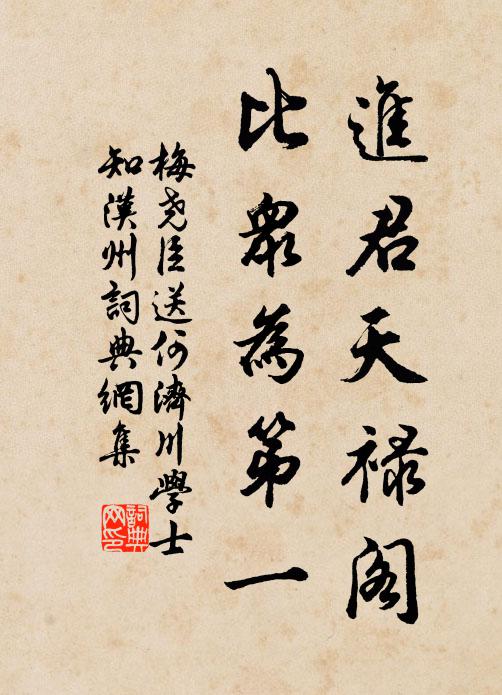 進君天禄閣
比眾為第一
梅尧臣送何濟川學士
知漢州詞典網集
詞典网印